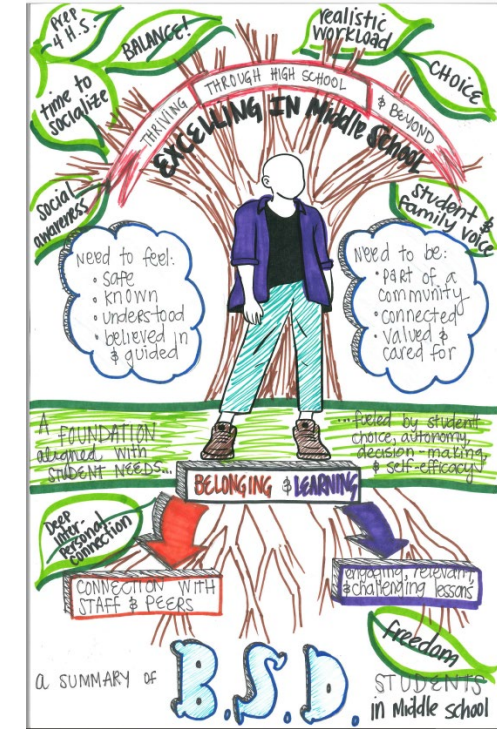 Prep
4 H.S.
BALANCE!
realistic
workload
CHOICE
time to
socialize
THRIVING THROUGH HIGH SCHOOL & BEYOND
EXCELLING IN Middle School
social
awareness
student &
Family Voice
Need to feel:
• safe
• known
• understood
• believed in
& guided
Need to be:
• part of a
community
• connected
• valued &
cared for
A FOUNDATION
aligned with
STUDENT NEEDS...
...fueled by student
choice, autonomy,
decision-making,
& self-efficacy
BELONGING & LEARNING
Deep
Inter-
Personal
connection
CONNECTION WITH
STAFF & PEERS
engaging, relevant,
& challenging lessons
freedom
a SUMMARY OF B.S.D. STUDENTS
in Middle school